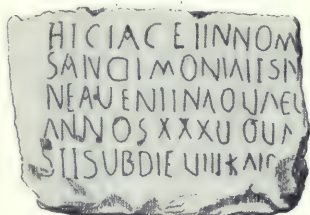 HIC IACE IIN NOM
SANCTIMONIAIISIN
NEAUENIINAQUAEU
ANNOS XXXU QUA
STISUBDIE UIIIKAIC